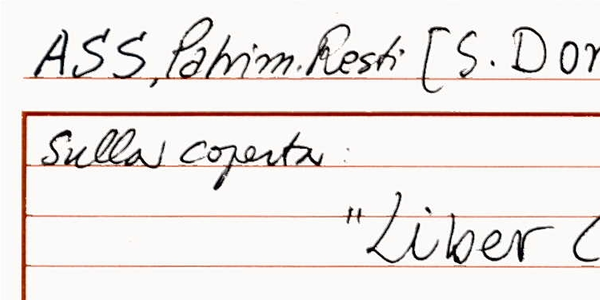 ASS, Patrim. Resti [S. Don
Sulla coperta:
"Liber C